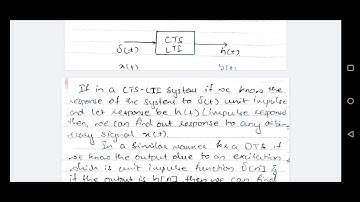 CTS
LTI
δ(t)
h(t)
x(t)
y(t)
If in a CTS-LTI system if we know the
response of the system to δ(t) unit impulse
and let response be h(t) (impulse response
then, we can find out response to any arbi-
trary signal x(t).
In a similar manner for a DTS if
we know the output due to an excitation
which is unit impulse function δ[n] &
if the output is h[n] then we can find